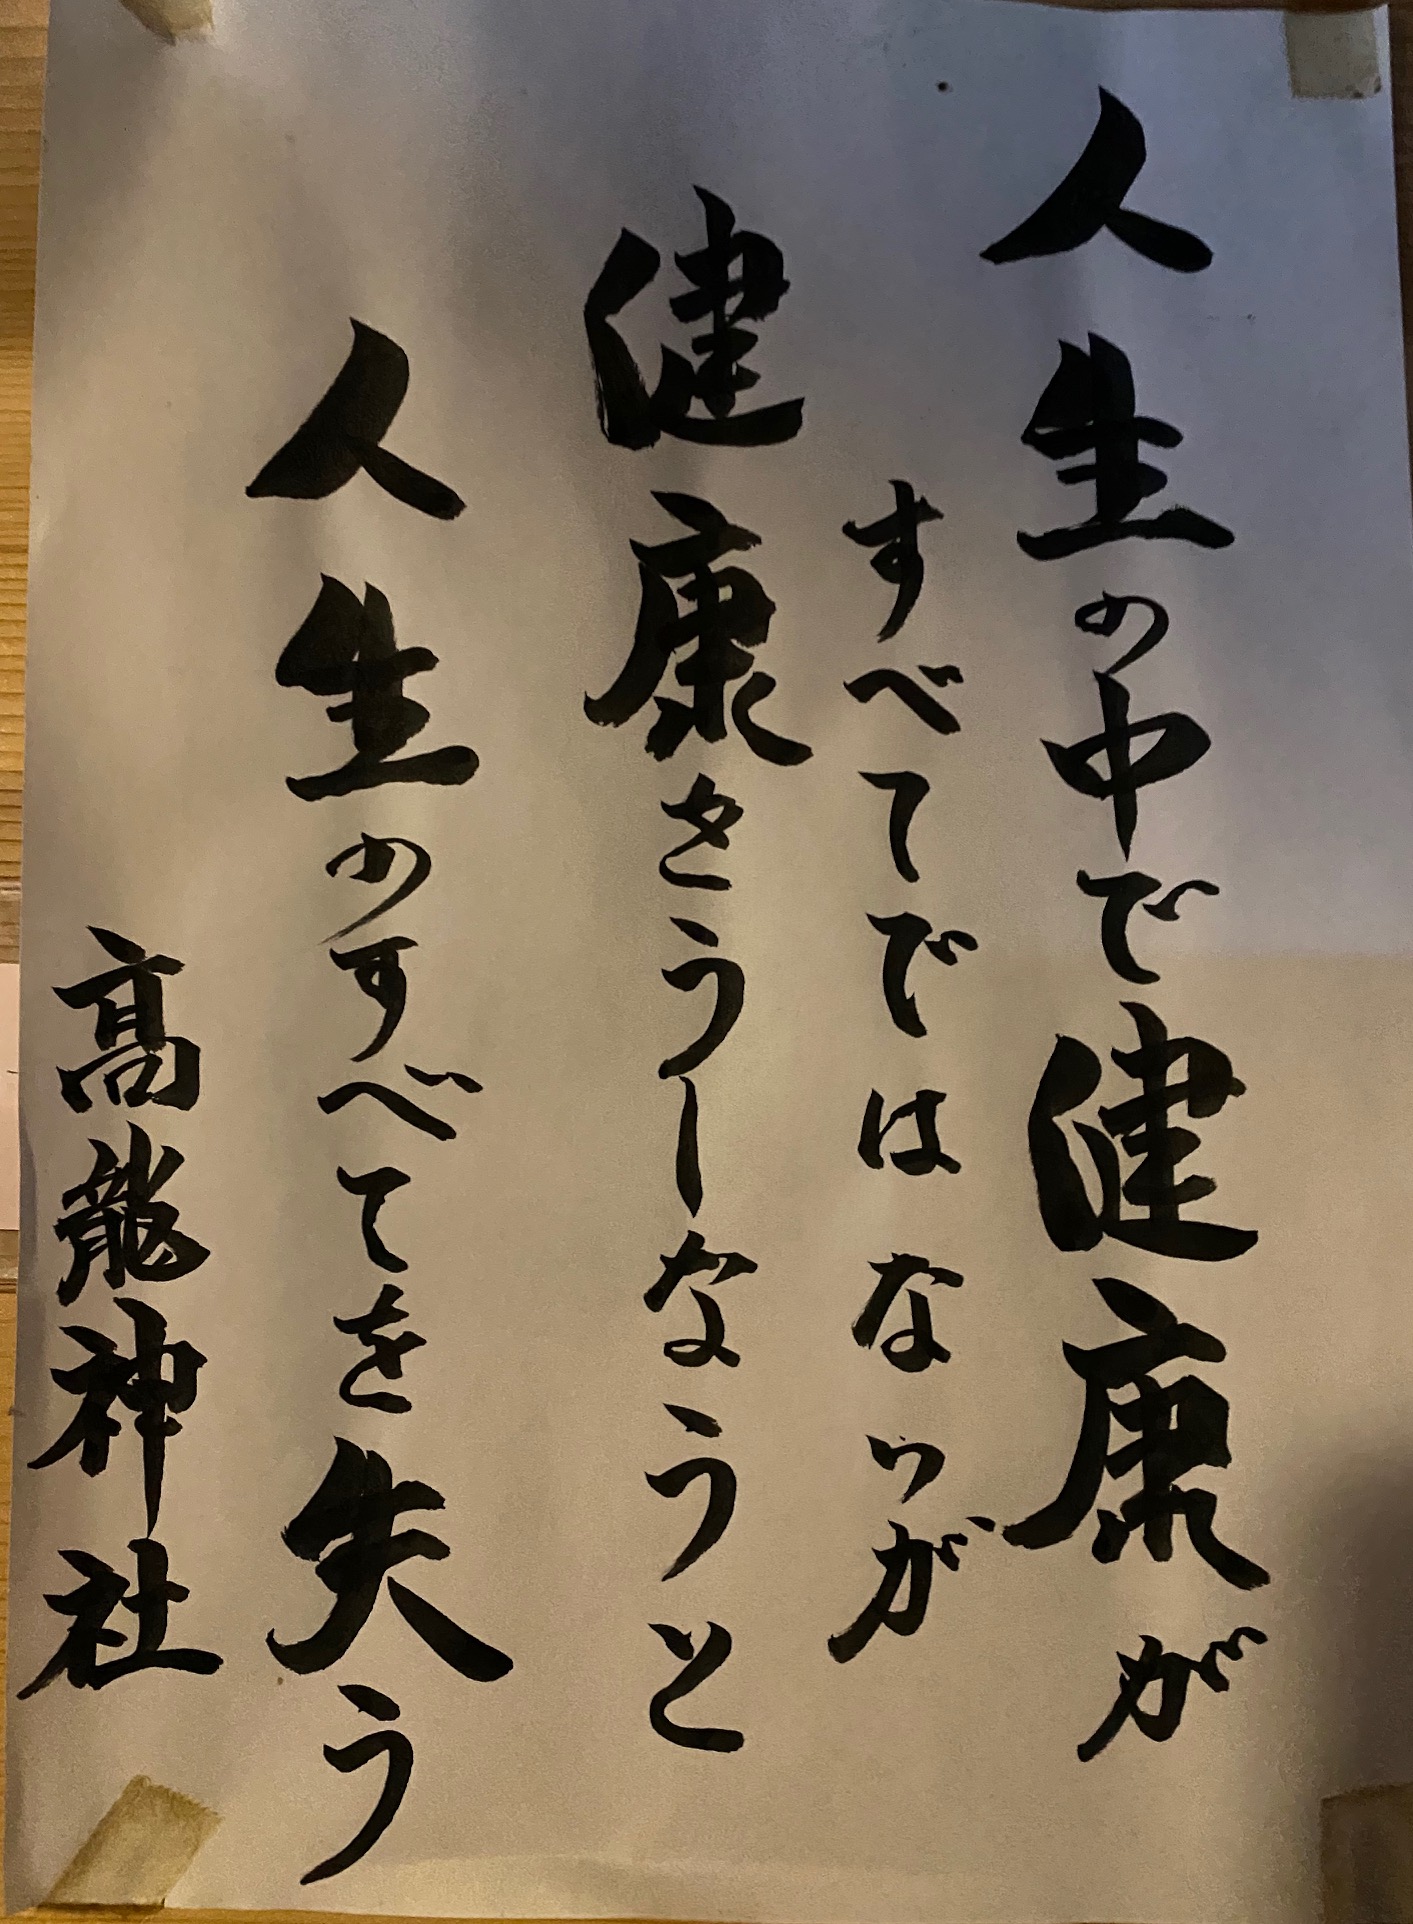 人生の中で健康が
すべてではないが
健康をうしなうと
人生のすべてを失う
高龍神社